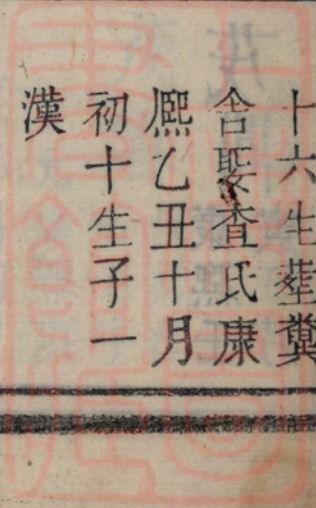 十六生塟糞
舍娶査氏康
熈乙丑十月
初十生子一
漢